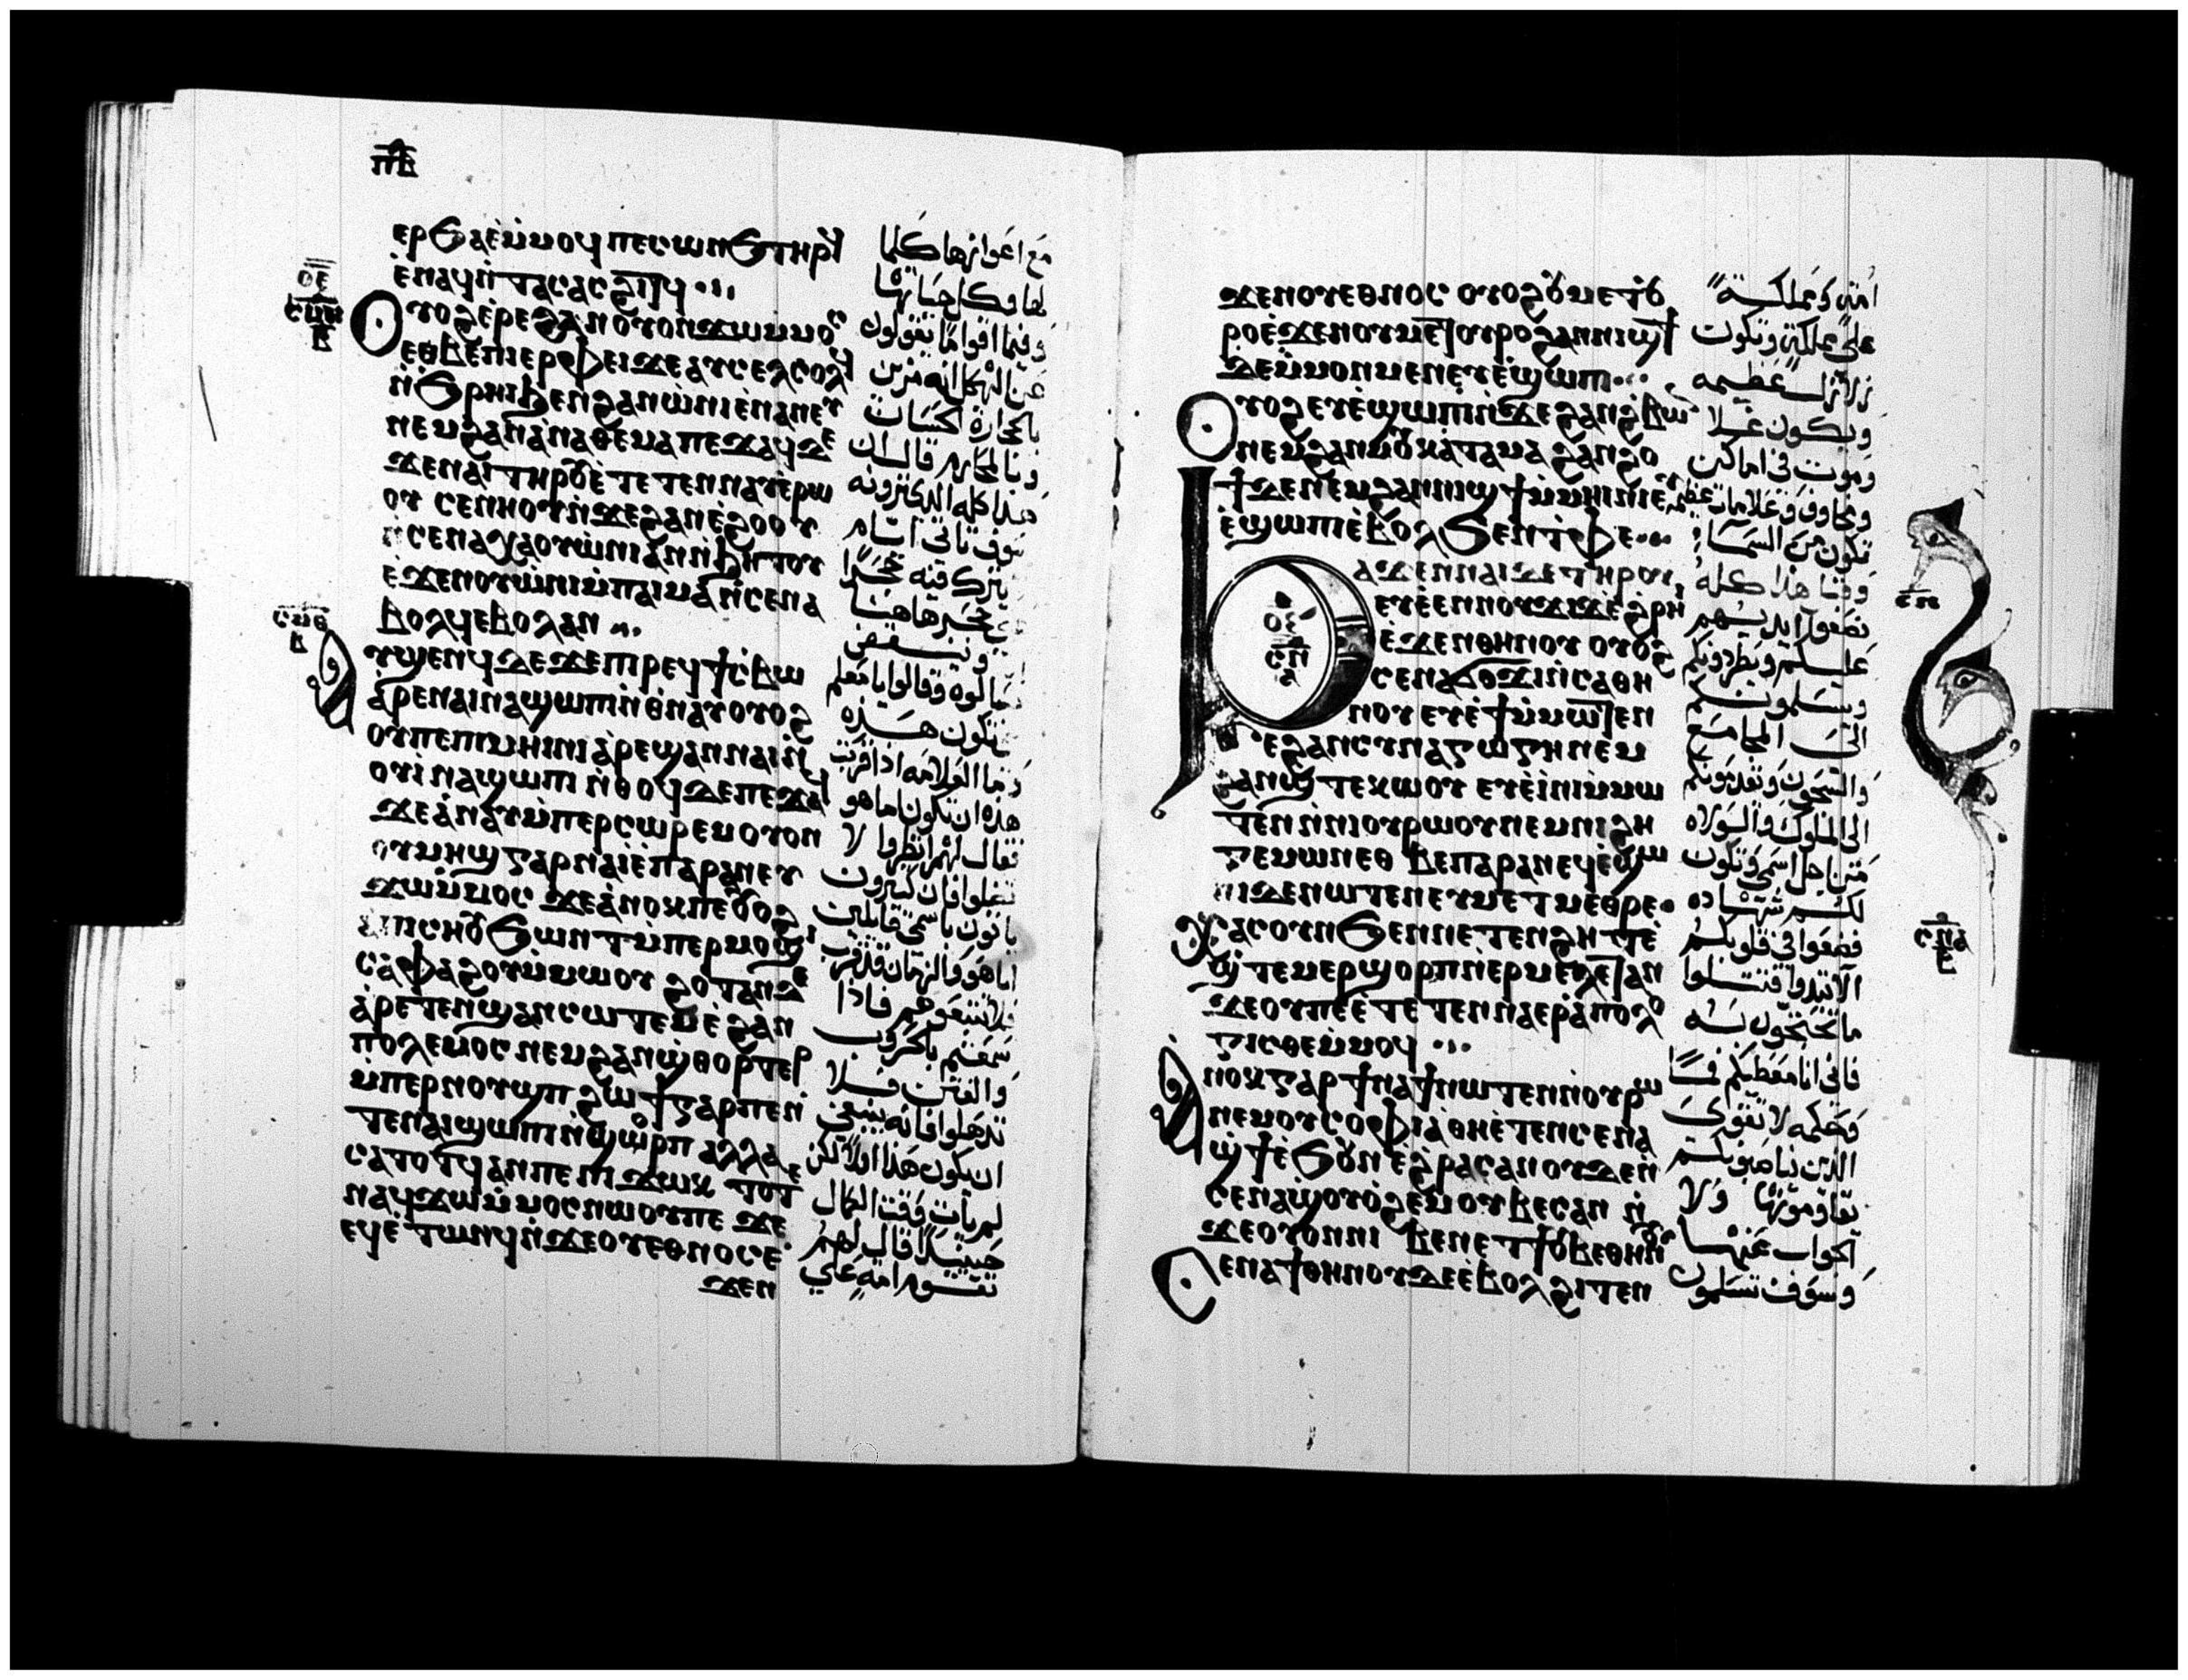 ⲡⲃ
ⲉⲣϧⲁⲉ̀ⲙ̀ⲙⲟϥ ⲡⲉⲥⲱⲛϧ ⲧⲏⲣϥ
ⲉ̀ⲛⲁϥⲛ̀ⲧⲁⲥ ⲁⲥϩⲓⲧϥ
ⲟⲉ
ⲟⲩⲟϩ ⲉ̀ⲣⲉ ϩⲁⲛⲟⲩⲟⲛ ϫⲱ ⲙ̀ⲙⲟⲥ
ⲉⲑⲃⲉ ⲡⲓⲉⲣⲫⲉⲓ ϫⲉ ⲁⲩⲥⲉⲗⲥⲱⲗϥ
ⲛ̀ϧⲣⲏⲓ ϧⲉⲛ ϩⲁⲛⲱ̀ⲛⲓ ⲉ̀ⲛⲁⲛⲉⲩ
ⲛⲉⲙ ϩⲁⲛⲁ̀ⲛⲁⲑⲉⲙⲁ ⲡⲉϫⲁϥ ϫⲉ
ϫⲉ ⲛⲁⲓ ⲧⲏⲣⲟⲩ ⲉ̀ⲧⲉⲧⲉⲛⲛⲁⲩ ⲉ̀ⲣⲱ
ⲟⲩ ⲥⲉⲛⲏⲟⲩ ⲛ̀ϫⲉ ϩⲁⲛⲉ̀ϩⲟⲟⲩ
ⲛ̀ⲥⲉⲛⲁⲭⲁ ⲟⲩⲱ̀ⲛⲓ ⲁⲛ ⲛ̀ϧⲏⲧⲟⲩ
ⲉϫⲉⲛ ⲟⲩⲱ̀ⲛⲓ ⲙ̀ⲡⲁⲓⲙⲁ ⲛ̀ⲥⲉⲛⲁ
ⲃⲟⲗϥ ⲉⲃⲟⲗ ⲁⲛ
ⲁⲩϣⲉⲛϥ ϫⲉ ϫⲉ ⲡⲓⲣⲉϥϯⲥⲃⲱ
ⲁ̀ⲣⲉ ⲛⲁⲓ ⲛⲁϣⲱⲡⲓ ⲛ̀ⲑⲛⲁⲩ ⲟⲩⲟϩ
ⲟⲩ ⲡⲉ ⲡⲓⲙⲏⲓⲛⲓ ⲁ̀ⲣⲉϣⲁⲛ ⲛⲁⲓ ⲛ̀
ⲟⲩⲓ̀ ⲛⲁϣⲱⲡⲓ ⲛ̀ⲑⲟϥ ϫⲉ ⲡⲉϫⲁϥ
ϫⲉ ⲁ̀ⲛⲁⲩ ⲙ̀ⲡⲉⲣⲥⲱⲣⲉⲙ ⲟⲩⲟⲛ
ⲟⲩⲙⲏϣ ⲅⲁⲣ ⲛⲁⲓ̀ ⲉ̀ⲡⲁⲣⲁⲛ ⲉⲩ
ϫⲱ ⲙ̀ⲙⲟⲥ ϫⲉ ⲁ̀ⲛⲟⲕ ⲡⲉ ⲟⲩⲟϩ
ⲁ̀ⲡⲓⲥⲏⲟⲩ ϧⲱⲛⲧ ⲙ̀ⲡⲉⲣⲙⲟϣⲓ
ⲥⲁⲫⲁϩⲟⲩ ⲙ̀ⲙⲱⲟⲩ ϩⲟⲧⲁⲛ ϫⲉ
ⲁ̀ⲣⲉⲧⲉⲛϣⲁⲛⲥⲱⲧⲉⲙ ⲉ̀ϩⲁⲛ
ⲡⲟⲗⲉⲙⲟⲥ ⲛⲉⲙ ϩⲁⲛϣ̀ⲑⲟⲣⲧⲉⲣ
ⲙ̀ⲡⲉⲣⲛⲟⲩϣⲡ ϩⲱϯ ⲅⲁⲣ ⲡⲉ ⲛ̀
ⲧⲉ ⲛⲁⲓ ϣⲱⲡⲓ ⲛ̀ϣⲟⲣⲡ ⲁⲗⲗⲁ
ⲥⲁⲧⲟⲧϥ ⲁⲛ ⲡⲉ ⲡⲓϫⲱⲕ ⲧⲟⲧⲉ
ⲛⲁϥϫⲱ ⲙ̀ⲙⲟⲥ ⲛⲱⲟⲩ ⲡⲉ ϫⲉ
ⲉϥⲉ̀ⲧⲱⲛϥ ⲛ̀ϫⲉ ⲟⲩⲉⲑⲛⲟⲥ ⲉ̀
ϫⲉⲛ
مع اعوازها كلما
لها وكل حياتها
وفيما اقواما يقولون
عن الهيكل انه مزين
بالحجارة الحسنات
وبالمحارم قال ان
هذا كله الذى ترونه
سوف تاتى ايام
لا يترك فيه حجرا
على حجر هاهنا
وينقض
سالوه وقالوا يا معلم
متى تكون هذه
وما العلامه اذا قربت
هذه ان تكون اما هو
فقال لهم انظروا لا
تضلوا فان كثيرون
ياتون باسمى قايلين
انا هو والزمان قد قرب
فلا تتبعوهم فاذا
سمعتم بالحروب
والفتن فلا
تذهلوا فانه ينبغى
ان يكون هذا اولا لكن
لم يات وقت الكمال
حينيذ قال لهم
تقوم امه على
ϫⲉⲛ ⲟⲩⲉⲑⲛⲟⲥ ⲟⲩⲟϩ ⲟⲩⲙⲉⲧⲟⲩ
ⲣⲟ ⲉ̀ϫⲉⲛ ⲟⲩⲙⲉⲧⲟⲩⲣⲟ ϩⲁⲛⲛⲓϣϯ
ϫⲉ ⲙ̀ⲙⲟⲛⲙⲉⲛ ⲉⲩⲉ̀ϣⲱⲡⲓ
ⲟⲩⲟϩ ⲉⲩⲉ̀ϣⲱⲡⲓ ⲛ̀ϫⲉ ϩⲁⲛϩ̀ⲃⲱⲛ
ⲛⲉⲙ ϩⲁⲛⲙⲟⲩ ⲕⲁⲧⲁ ⲙⲁ ϩⲁⲛϩⲟ
ϯ ϫⲉ ⲛⲉⲙ ϩⲁⲛⲛⲓϣϯ ⲙ̀ⲙⲏⲓⲛⲓ ⲉⲩ
ⲉ̀ϣⲱⲡⲓ ⲉ̀ⲃⲟⲗ ϧⲉⲛ ⲧ̀ⲫⲉ
ⲟⲉ
ⲥⲡ
ⲁϫⲉⲛ ⲛⲁⲓ ϫⲉ ⲧⲏⲣⲟⲩ
ⲉⲩⲉ̀ⲉⲛ ⲛⲟⲩϫⲓϫ ⲉ̀ϩⲣⲏⲓ
ⲉ̀ϫⲉⲛ ⲑⲏⲛⲟⲩ ⲟⲩⲟϩ
ⲥⲉⲛⲁϭⲟϫⲓ ⲛ̀ⲥⲁ ⲑⲏ
ⲛⲟⲩ ⲉⲩⲉ̀ϯ ⲙ̀ⲙⲱⲧⲉⲛ
ⲉ̀ϩⲁⲛⲥⲩⲛⲁⲅⲱⲅⲏ ⲛⲉⲙ
ϩⲁⲛϣ̀ⲧⲉⲕⲱⲟⲩ ⲉⲩⲉ̀ⲓ̀ⲛⲓ ⲙ̀ⲙⲱ
ⲧⲉⲛ ⲛ̀ⲛⲓⲟⲩⲣⲱⲟⲩ ⲛⲉⲙ ⲛⲓϩⲏ
ⲅⲉⲙⲱⲛ ⲉⲑⲃⲉ ⲡⲁⲣⲁⲛ ⲉϥⲉ̀ϣⲱ
ⲡⲓ ϫⲉ ⲛⲱⲧⲉⲛ ⲉⲩⲙⲉⲧⲙⲉⲑⲣⲉ
ⲭⲁⲥ ⲟⲩⲛ ϧⲉⲛ ⲛⲉⲧⲉⲛϩⲏⲧ ⲉ̀
ϣ̀ⲧⲉⲙⲉⲣϣⲟⲣⲡ ⲛ̀ⲉⲣⲙⲉⲗⲉⲧⲁⲛ
ϫⲉ ⲟⲩ ⲡⲉ ⲉ̀ⲧⲉⲧⲉⲛⲛⲁⲉⲣⲁ̀ⲡⲟⲗⲟ
ⲅⲓⲥⲑⲉ ⲙ̀ⲙⲟϥ
ⲁⲛⲟⲕ ⲅⲁⲣ ϯⲛⲁϯ ⲛⲱⲧⲉⲛ ⲛ̀ⲟⲩⲣⲱ
ⲛⲉⲙ ⲟⲩⲥⲟⲫⲓⲁ ⲑⲏ ⲉ̀ⲧⲉⲛⲥⲉⲛⲁ
ϣ̀ϯ ⲉ̀ϧⲟⲩⲛ ⲉ̀ϩⲣⲁⲥ ⲁⲛ ⲟⲩϫⲉ ⲛ̀
ⲥⲉⲛⲁϣ̀ⲟⲩⲟϩⲉⲙ ⲟⲩⲃⲉⲥ ⲁⲛ ⲛ̀
ϫⲉ ⲟⲩⲟⲛ ⲛⲓⲃⲉⲛ ⲉⲧϯ ⲟⲩⲃⲉ ⲑⲏⲛⲟⲩ
ⲥⲉⲛⲁϯ ⲑⲏⲛⲟⲩ ϫⲉ ⲉ̀ⲃⲟⲗ ϩⲓⲧⲉⲛ
امه ومملكه
على مملكه وتكون
زلازل عظيمه
ويكون غلا
وموت فى اماكن
ومخاوف وعلامات عظيمه
تكون من السماء
وقبل هذا كله
يضعوا ايديهم
عليكم ويطردونكم
ويسلمونكم
الى المجامع
والسجون ويقدمونكم
الى الملوك والولاه
من اجل اسمى وتكون
لكم شهاده
فضعوا فى قلوبكم
الا تبدوا فتتلوا
ما تحتجون به
فانى انا معطيكم فما
وحكمه لا تقوى
الذين يناصبونكم
يقاوموها ولا
الجواب عنها
وسوف تسلمون